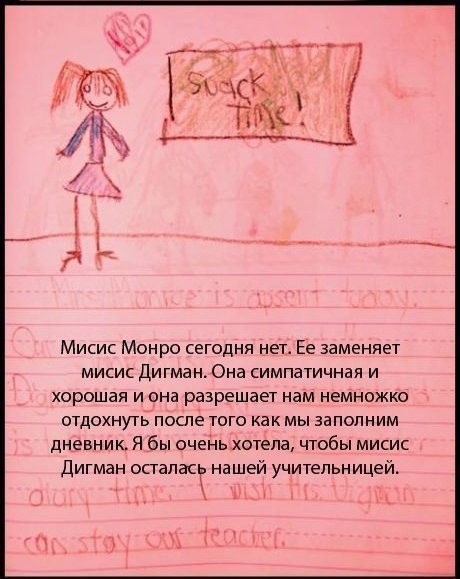 snack
time!
Mrs. Monroe is apsent today.
Мисис Монро сегодня нет. Ее заменяет
мисис Дигман. Она симпатичная и
хорошая и она разрешает нам немножко
отдохнуть после того как мы заполним
дневник. Я бы очень хотела, чтобы мисис
Дигман осталась нашей учительницей.
diary time. I wish Mrs. Digman
can stay our teacher.